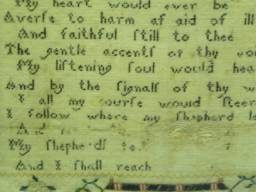 My heart would ever be
Averſe to harm at aid of ill
And faithful ſtill to thee
The gentle accents of thy vo
My liſtening ſoul would hea
And by the ſignalſ of thy w
I all my courſe would ſteer
I follow where my ſhepherd le
And
My ſhephe
And I ſhall reach